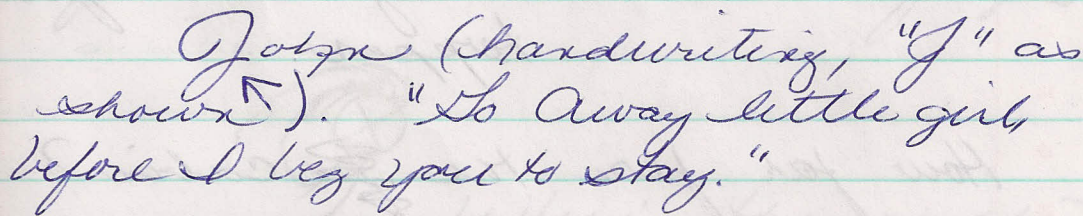 John (handwriting, "J" as
shown↖). "Go Away little girl,
before I beg you to stay."